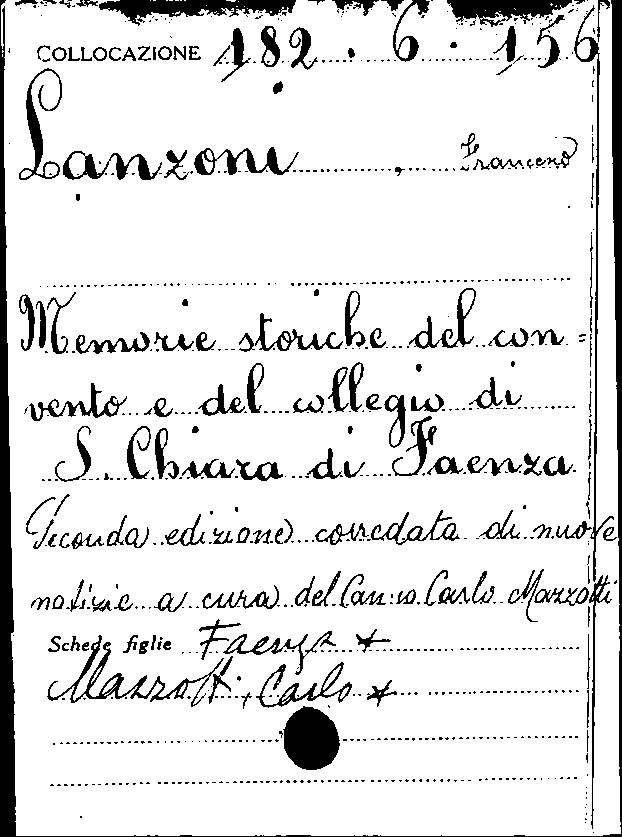 COLLOCAZIONE 182 . 6 . 156
Lanzoni , Francesco
Memorie storiche del con=
vento e del collegio di
S. Chiara di Faenza
Seconda edizione corredata di nuove
notizie a cura del Can.co Carlo Mazzotti
Schede figlie Faenza *
Mazzotti, Carlo *